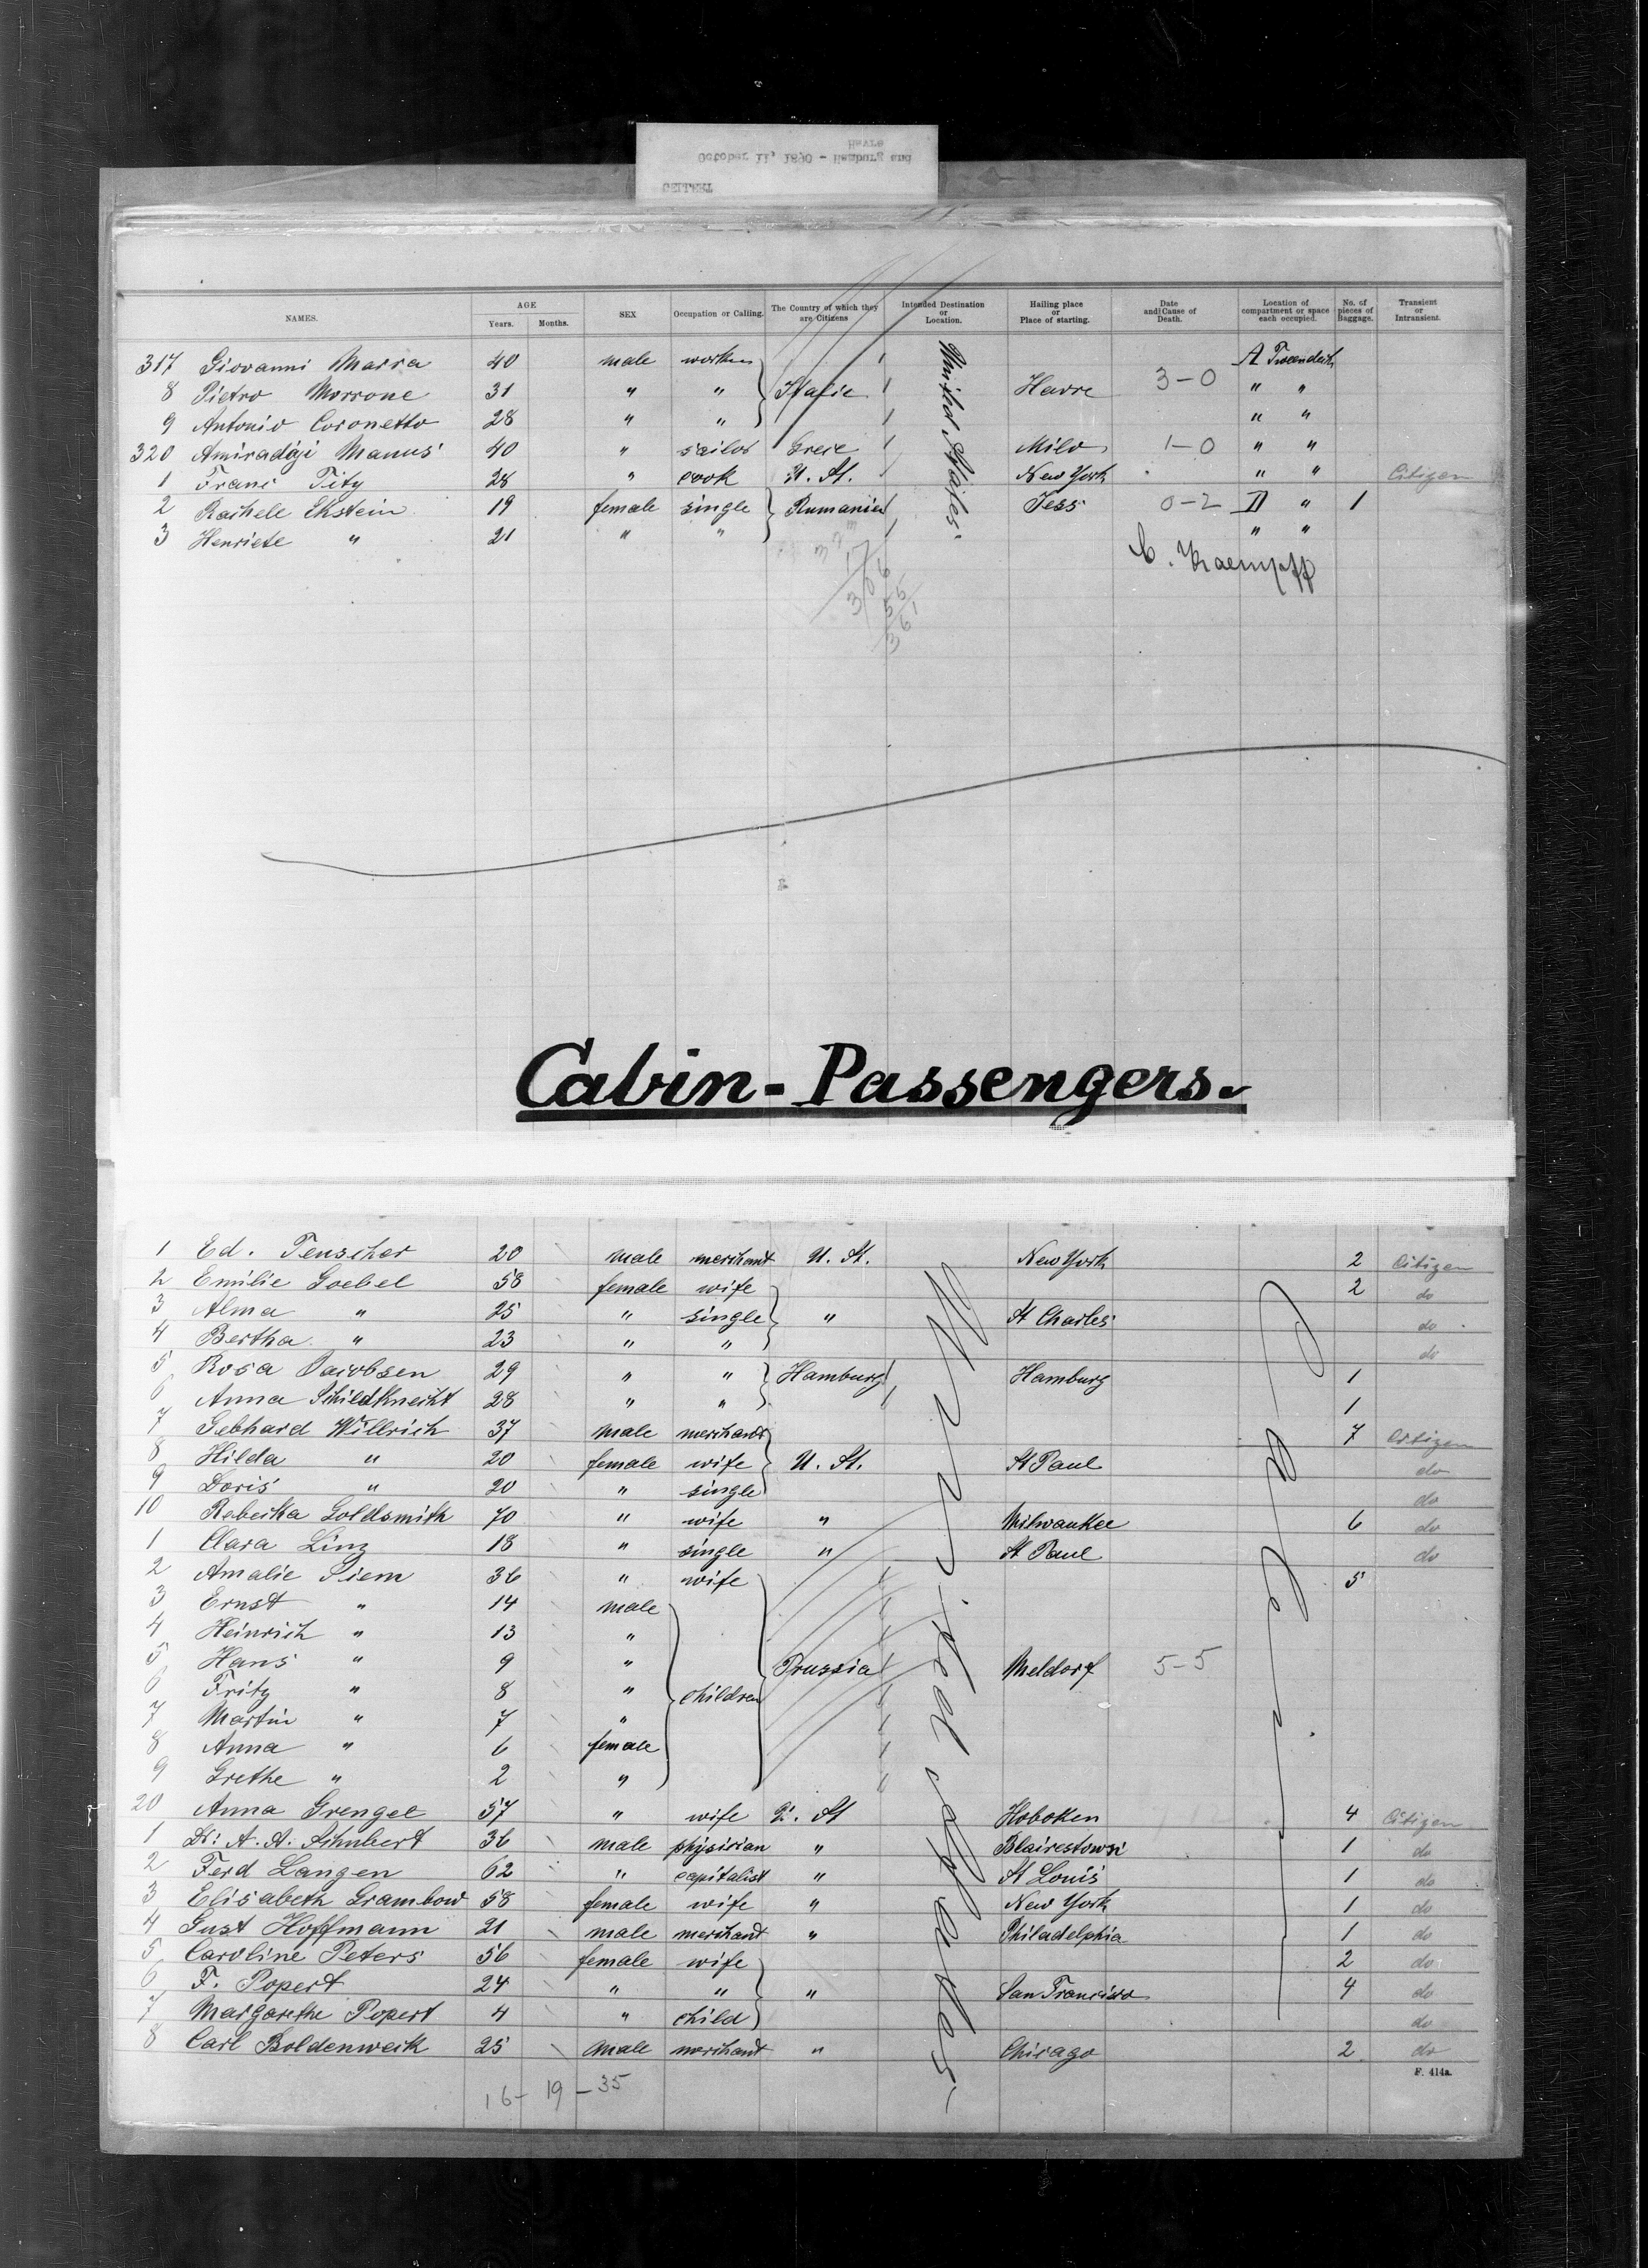 GELLERT
October 11, 1890 - Hamburg and
Havre
NAMES. AGE Years. Months. SEX Occupation or Calling. The Country of which they are Citizens Intended Destination or Location. Hailing place or Place of starting. Date and Cause of Death. Location of compartment or space each occupied. No. of pieces of Baggage. Transient or Intransient.
317 Giovanni Marra 40 male worker A Tweendeck
8 Pietro Morrone 31 " " Italie Havre 3-0 " "
9 Antonio Coronetto 28 " " " "
320 Amiradgi Manus 40 " sailor Greie Milo 1-0 " "
1 Frans Tity 28 " cook U. St. New York " " Citizen
2 Rachele Ekstein 19 female single Rumanien Jess 0-2 II " 1
3 Henriete " 21 " " " "
United States
C. Kaempff
17
306
55
361
Cabin-Passengers.
1 Ed. Tenscher 20 male merchant U. St. New York 2 Citizen
2 Emilie Goebel 58 female wife 2 do
3 Alma " 25 " single " St Charles do
4 Bertha " 23 " " do
5 Rosa Jacobsen 29 " " Hamburg Hamburg 1
6 Anna Schildknecht 28 " " 1
7 Gebhard Willrich 37 male merchant 7 Citizen
8 Hilda " 20 female wife U. St. St Paul do
9 Doris " 20 " single do
10 Rebecka Goldsmith 70 " wife " Milwaukee 6 do
1 Clara Linz 18 " single " St Paul do
2 Amalie Siem 36 " wife 5
3 Ernst " 14 male
4 Heinrich " 13 "
5 Hans " 9 " Prussia Meldorf 5-5
6 Fritz " 8 " children
7 Martin " 7 "
8 Anna " 6 female
9 Grethe " 2 "
20 Anna Grengel 57 " wife U. St Hoboken 4 Citizen
1 Dr. A. A. Schubert 36 male physician " Blairestown 1 do
2 Ferd Langen 62 " capitalist " St Louis 1 do
3 Elisabeth Grambow 58 female wife " New York 1 do
4 Gust Hoffmann 21 male merchant " Philadelphia 1 do
5 Caroline Peters 56 female wife 2 do
6 F. Popert 24 " " " San Francisco 4 do
7 Margarethe Popert 4 " child do
8 Carl Boldenweck 25 male merchant " Chicago 2 do
United States
F. 414a.
16-19-35